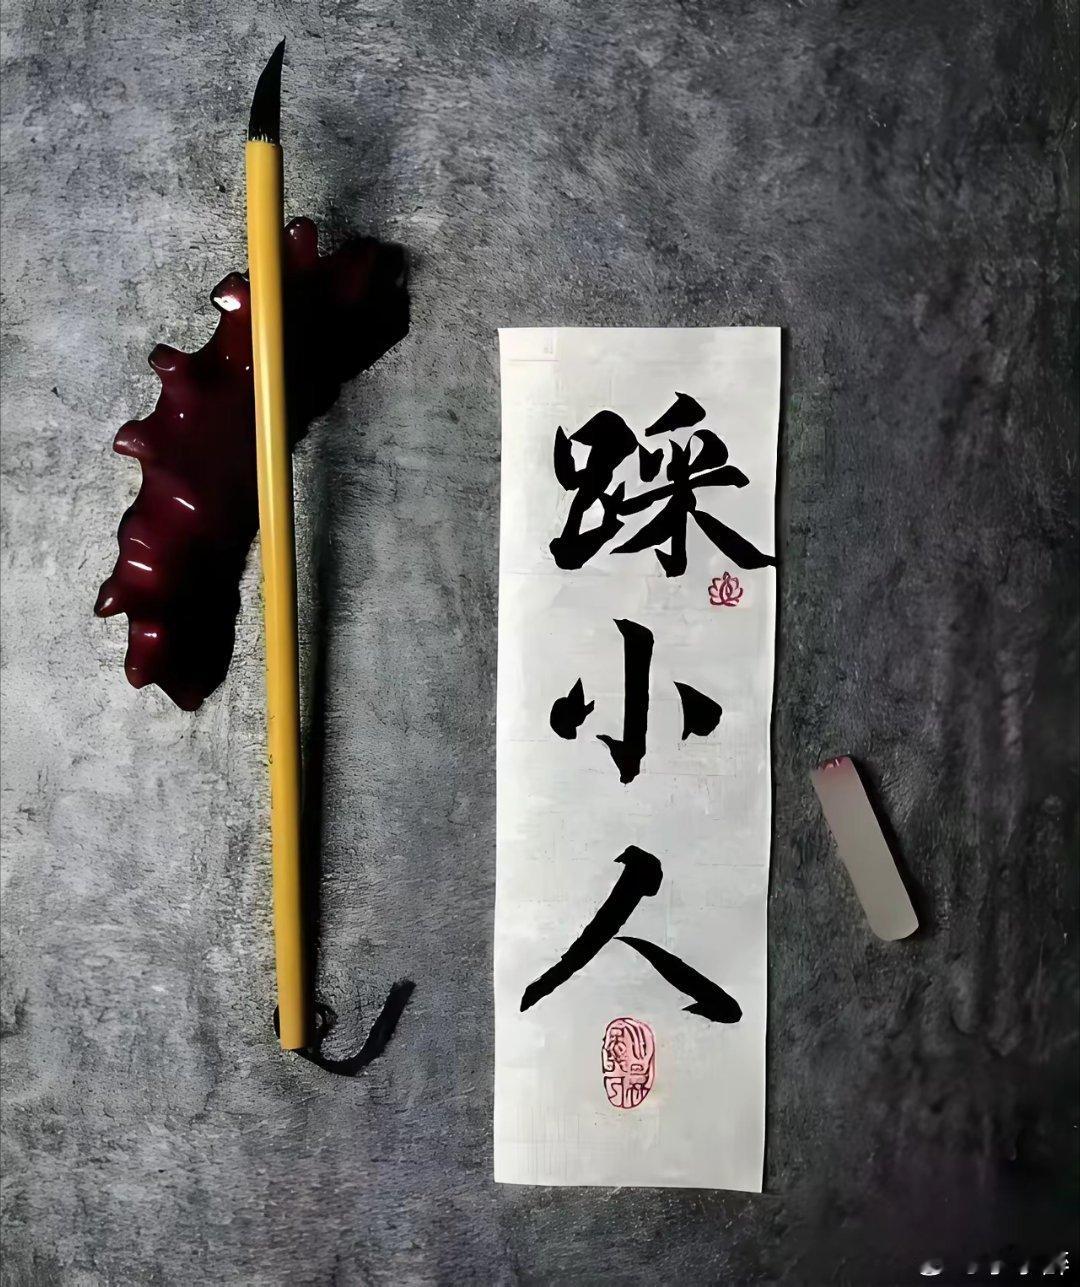 踩小人